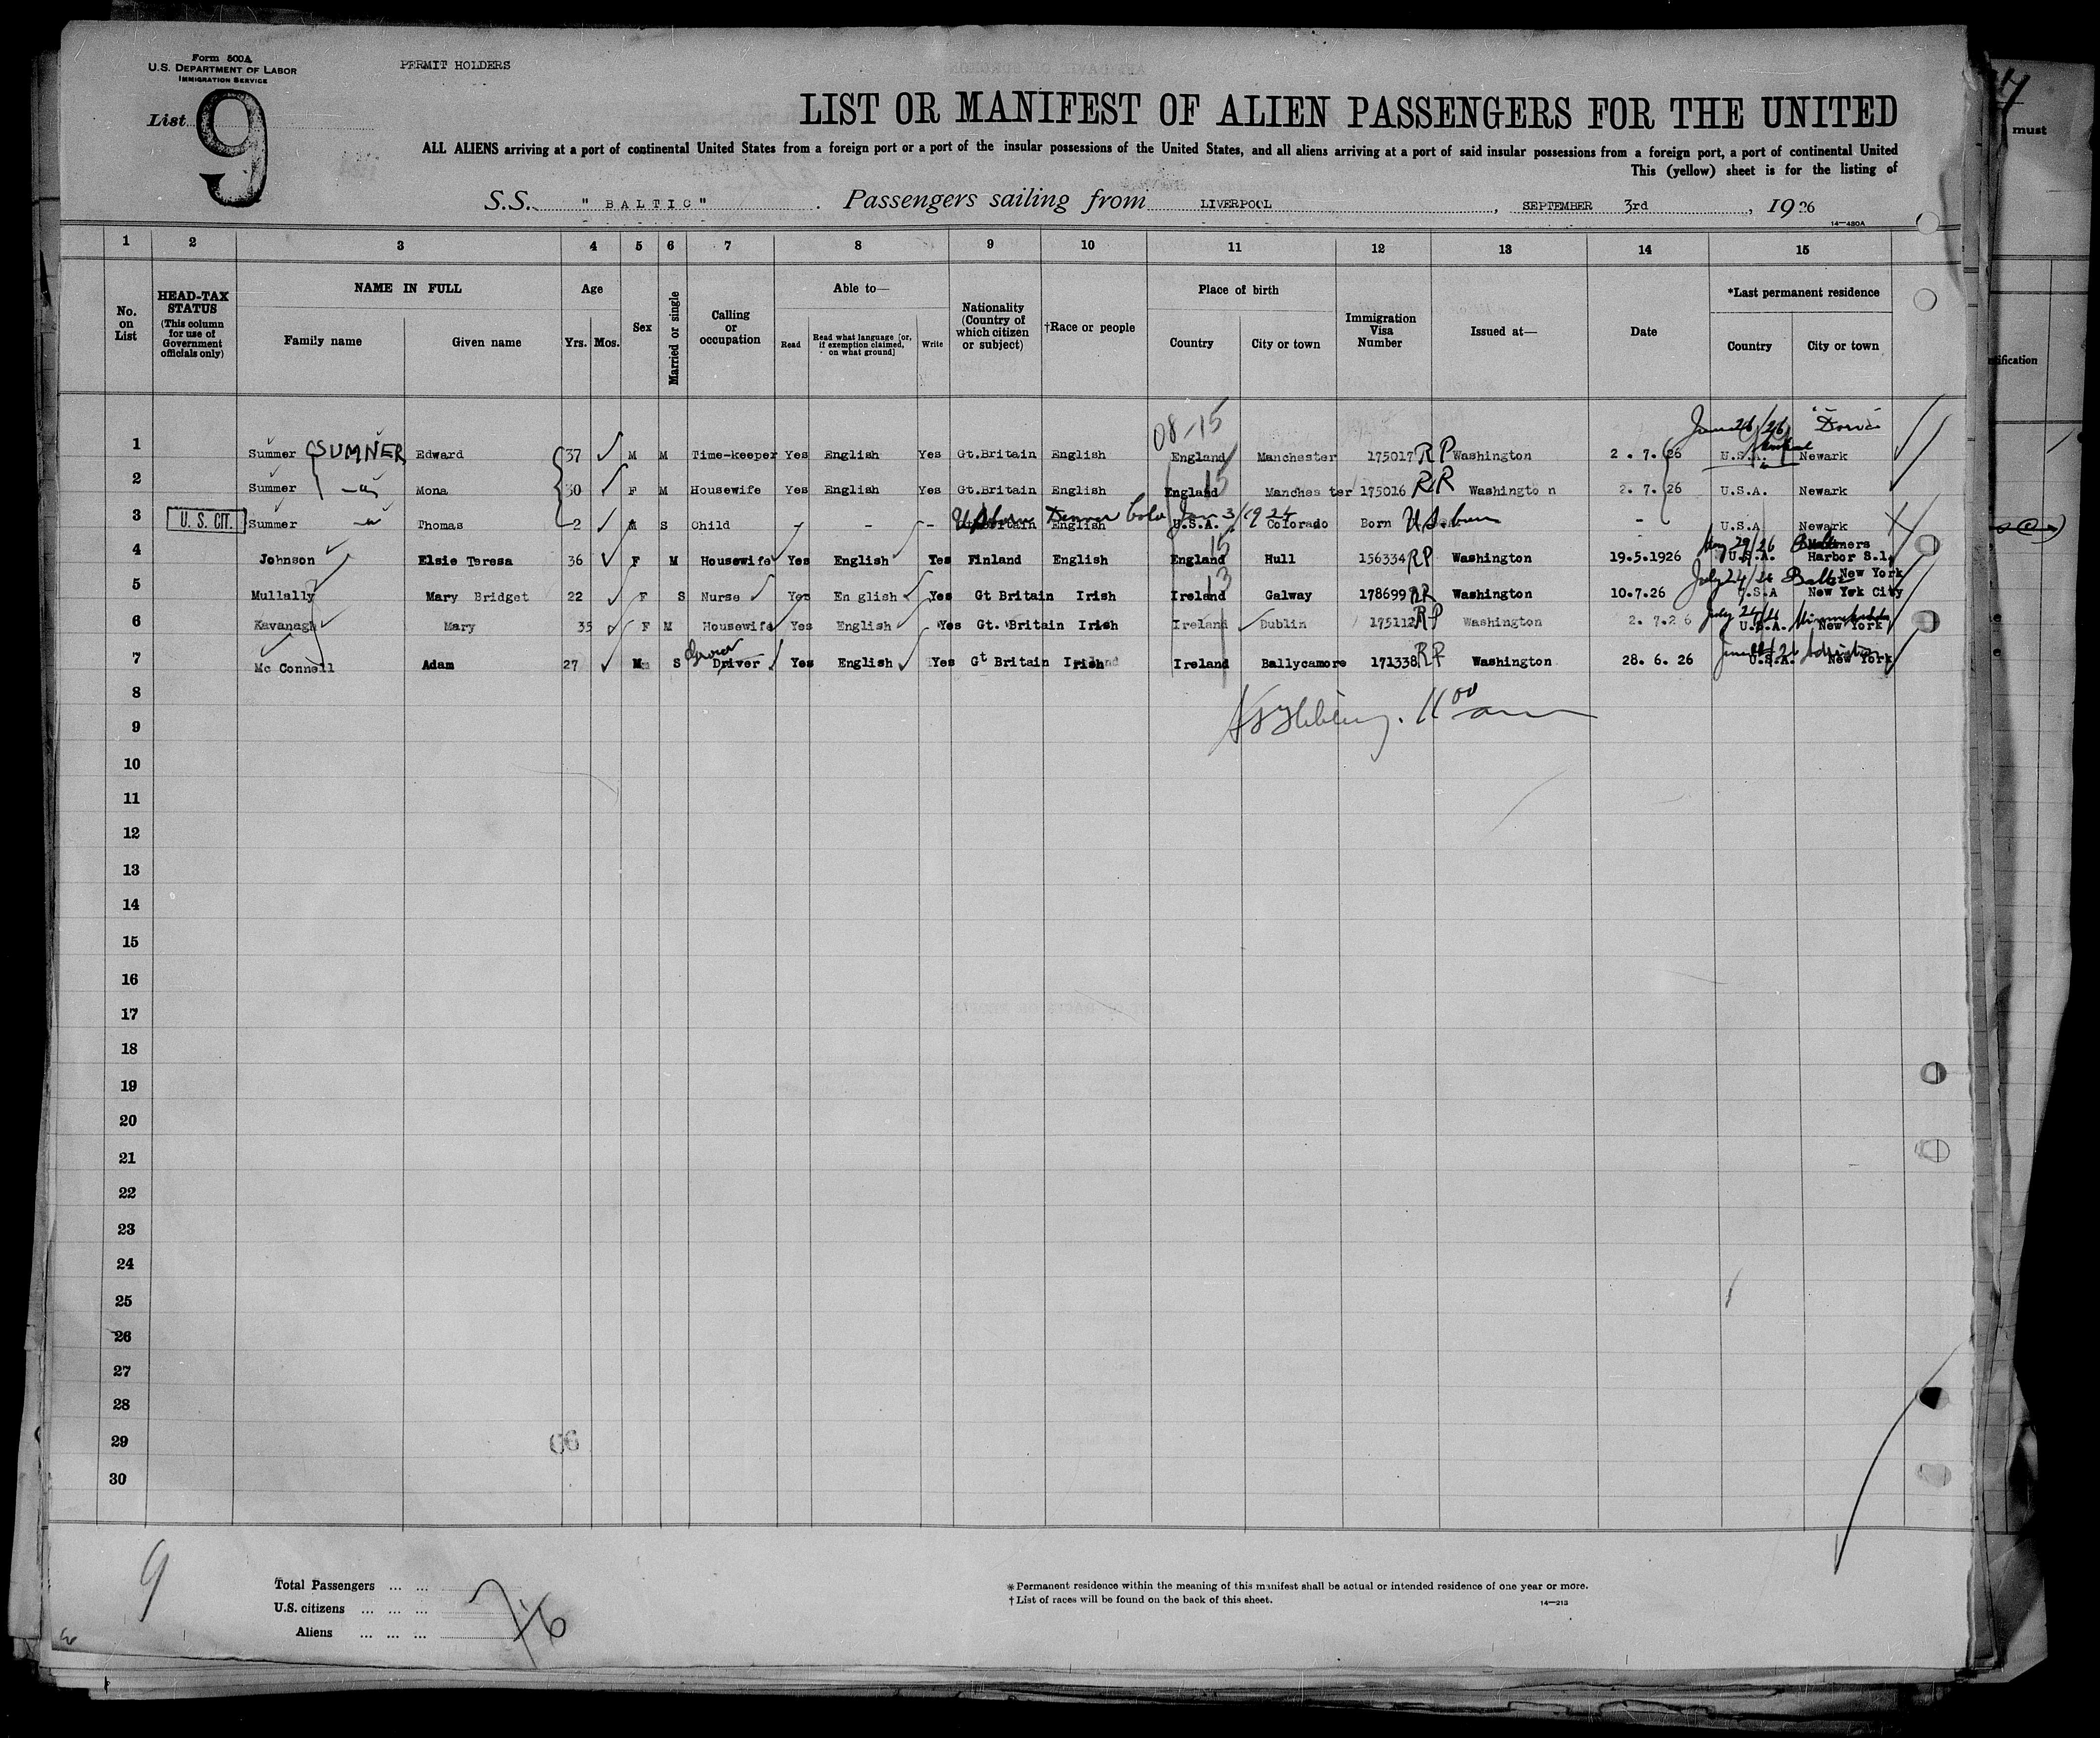 Form 500A
U.S. DEPARTMENT OF LABOR
IMMIGRATION SERVICE
PERMIT HOLDERS
List 9
LIST OR MANIFEST OF ALIEN PASSENGERS FOR THE UNITED
ALL ALIENS arriving at a port of continental United States from a foreign port or a port of the insular possessions of the United States, and all aliens arriving at a port of said insular possessions from a foreign port, a port of continental United
This (yellow) sheet is for the listing of
S.S. "BALTIC". Passengers sailing from LIVERPOOL, SEPTEMBER 3rd, 1926
14—480A
1 2 3 4 5 6 7 8 9 10 11 12 13 14 15
No. on List
HEAD-TAX STATUS (This column for use of Government officials only)
NAME IN FULL
Family name Given name
Age
Yrs. Mos.
Sex
Married or single
Calling or occupation
Able to—
Read Read what language [or, if exemption claimed, on what ground] Write
Nationality (Country of which citizen or subject)
†Race or people
Place of birth
Country City or town
Immigration Visa Number
Issued at—
Date
*Last permanent residence
Country City or town
08-15 June 26/26
1 Summer SUMNER Edward 37 M M Time-keeper Yes English Yes Gt.Britain English England Manchester 175017 RP Washington 2.7.26 U.S.A. Newark
15
2 Summer Mona 30 F M Housewife Yes English Yes Gt.Britain English England Manchester 175016 RR Washington 2.7.26 U.S.A. Newark
US born Denver Colo Jan 3/1924 US born
3 U. S. CIT. Summer Thomas 2 S Child - - - Gt.Britain English U.S.A. Colorado Born - U.S.A Newark
15 May 29/26 Mariners
4 Johnson Elsie Teresa 36 F M Housewife Yes English Yes Finland English England Hull 156334 RP Washington 19.5.1926 U.S.A. Harbor S.1.
13 July 24/26 New York
5 Mullally Mary Bridget 22 F S Nurse Yes English Yes Gt Britain Irish Ireland Galway 178699 RR Washington 10.7.26 U.S.A New York City
6 Kavanagh Mary 35 F M Housewife Yes English Yes Gt. Britain Irish Ireland Dublin 175112 RP Washington 2.7.26 U.S.A. New York
7 Mc Connell Adam 27 M S Driver Yes English Yes Gt Britain Irish Ireland Ballycamore 171338 RP Washington 28.6.26 U.S.A. New York
8
11 00 am
9
10
11
12
13
14
15
16
17
18
19
20
21
22
23
24
25
26
27
28
29
06
30
9
Total Passengers ... ... 7
U.S. citizens ... ... ... 1
Aliens ... ... ... 6
*Permanent residence within the meaning of this manifest shall be actual or intended residence of one year or more.
†List of races will be found on the back of this sheet.
14—213
must